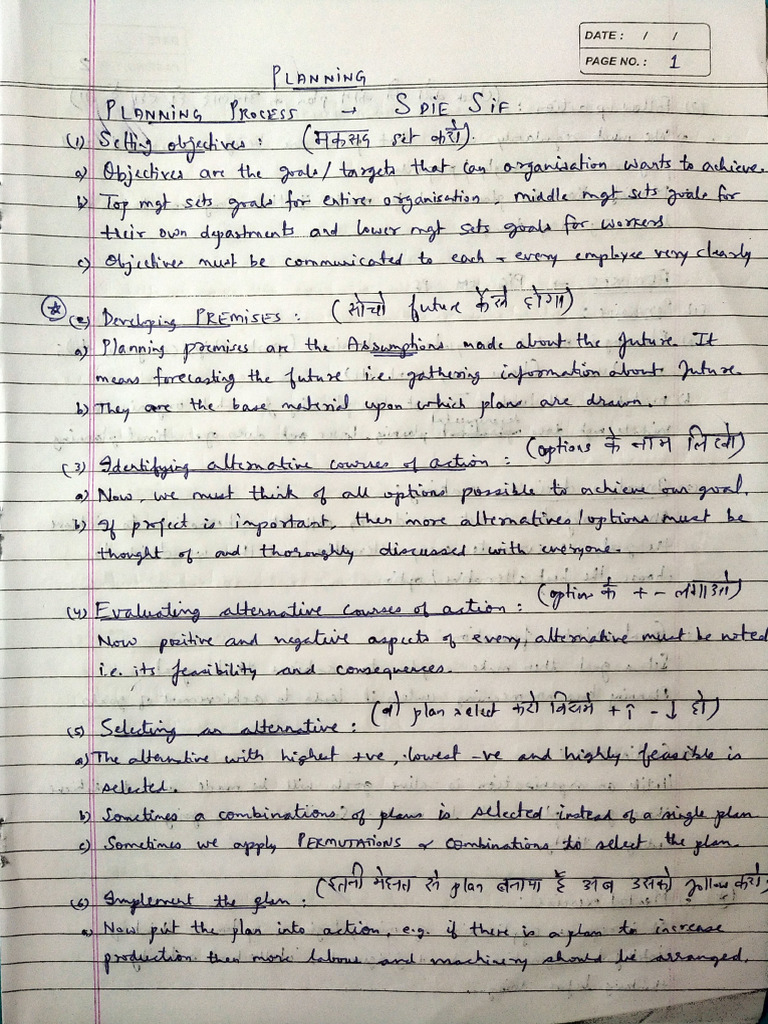 DATE: / /
PAGE NO.: 1
PLANNING
PLANNING PROCESS → SDIE SIF
(1) Setting objectives : (मकसद set करो).
a) Objectives are the goals/targets that can organisation wants to achieve.
b) Top mgt sets goals for entire organisation, middle mgt sets goals for
their own departments and lower mgt sets goals for workers
c) Objectives must be communicated to each & every employee very clearly
(2) Developing PREMISES : (सोचो future कैसे होगा)
a) Planning premises are the Assumptions made about the future. It
means forecasting the future i.e. gathering information about future.
b) They are the base material upon which plans are drawn.
(3) Identifying alternative courses of action : (options के नाम लिखो)
a) Now, we must think of all options possible to achieve our goal.
b) If project is important, then more alternatives/options must be
thought of and thoroughly discussed with everyone.
(4) Evaluating alternative courses of action : (option के + - लगाओ)
Now positive and negative aspects of every alternative must be noted
i.e. its feasibility and consequences.
(5) Selecting an alternative : (वो plan select करो जिसमे + ↑ - ↓ हो)
a) The alternative with highest +ve, lowest -ve and highly feasible is
selected.
b) Sometimes a combinations of plans is selected instead of a single plan
c) Sometimes we apply PERMUTATIONS & combinations to select the plan.
(6) Implement the plan : (इतनी मेहनत से plan बनाया है अब उसको follow करो)
a) Now put the plan into action, e.g. if there is a plan to increase
production then more labour and machinery should be arranged.